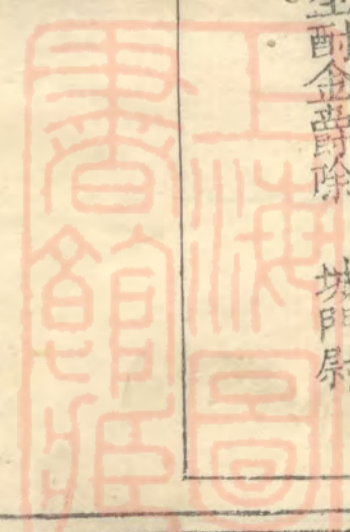 坐酎金爵除 城門尉
上海圖
書館藏